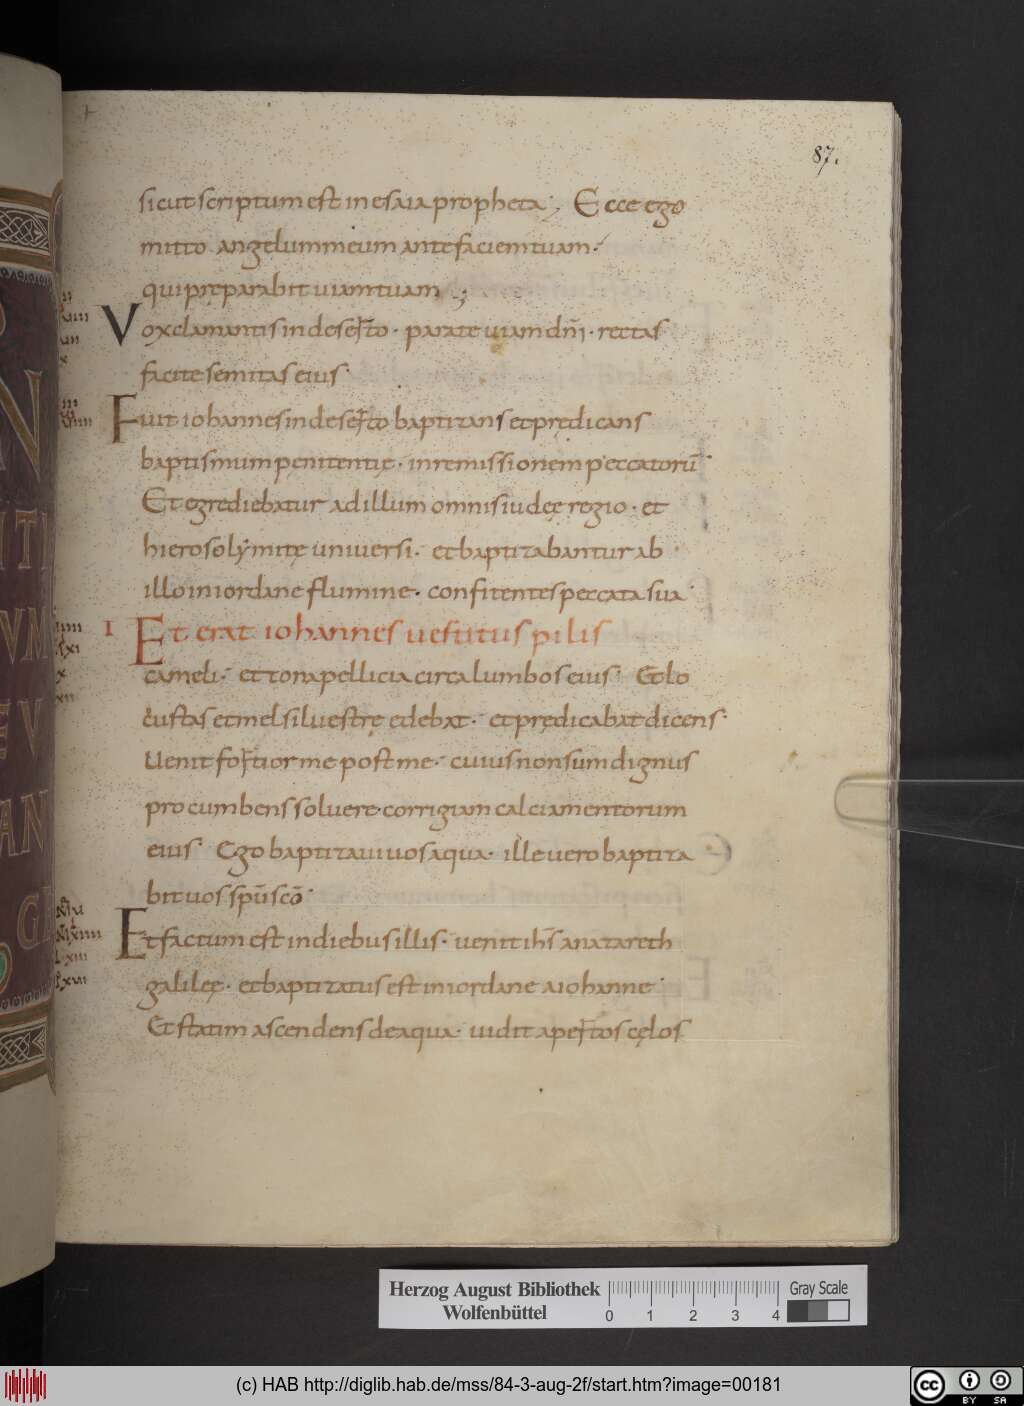 87.
sicut scriptum est in esaia propheta; Ecce ego
mitto angelum meum ante faciem tuam·
qui pręparabit uiam tuam;
Vox clamantis in deserto· parate uiam dñi· rectas
facite semitas eius·
Fuit iohannes in deserto baptizans et prędicans
baptismum pęnitentię· in remissionem peccatorū·
Et egrediebatur ad illum omnis iudeę regio· et
hierosolymitę uniuersi· et baptizabantur ab
illo in iordane flumine· confitentes peccata sua·
I Et erat iohannes uestitus pilis
cameli· et zona pellicia circa lumbos eius· Et lo
custas et mel siluestrę edebat· et prędicabat dicens·
Uenit fortior me post me· cuius non sum dignus
procumbens soluere corrigiam calciamentorum
eius· Ego baptizaui uos aqua· ille uero baptiza
bit uos spū scō·
Et factum est in diebus illis· uenit ihs̄ a nazareth
galileę· et baptizatus est in iordane a iohanne·
Et statim ascendens de aqua· uidit apertos cęlos
Herzog August Bibliothek
Wolfenbüttel
0 1 2 3 4
Gray Scale
(c) HAB http://diglib.hab.de/mss/84-3-aug-2f/start.htm?image=00181
cc BY SA